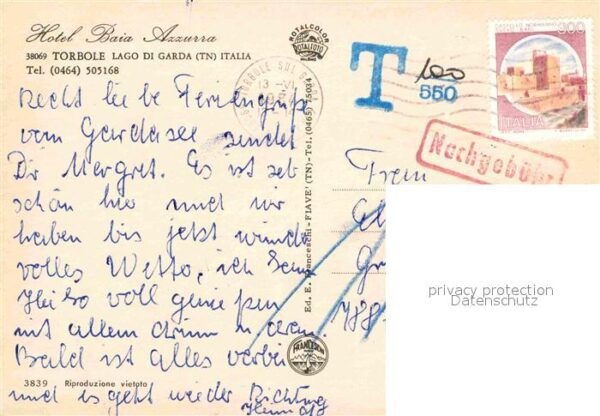 Hotel Baia Azzurra
38069 TORBOLE LAGO DI GARDA (TN) ITALIA
Tel. (0464) 505168
Recht liebe Feriengrüße
vom Gardasee sendet
Dir Margret. Es ist sehr
schön hier und wir
haben bis jetzt wunder
volles Wetter, ich kann
voll genießen
mit allem drum u. dran.
Bald ist alles vorbei
und es geht wieder Richtung
3839 Riproduzione vietata
ROTALCOLOR
ROTALFOTO
Ed. E. Franceschi - FIAVE' (TN) - Tel. (0465)
FRANCESCHI
TORBOLE SUL
13 - VI
T
100
550
300
ITALIA
Nachgebühr
Frau
788
privacy protection
Datenschutz